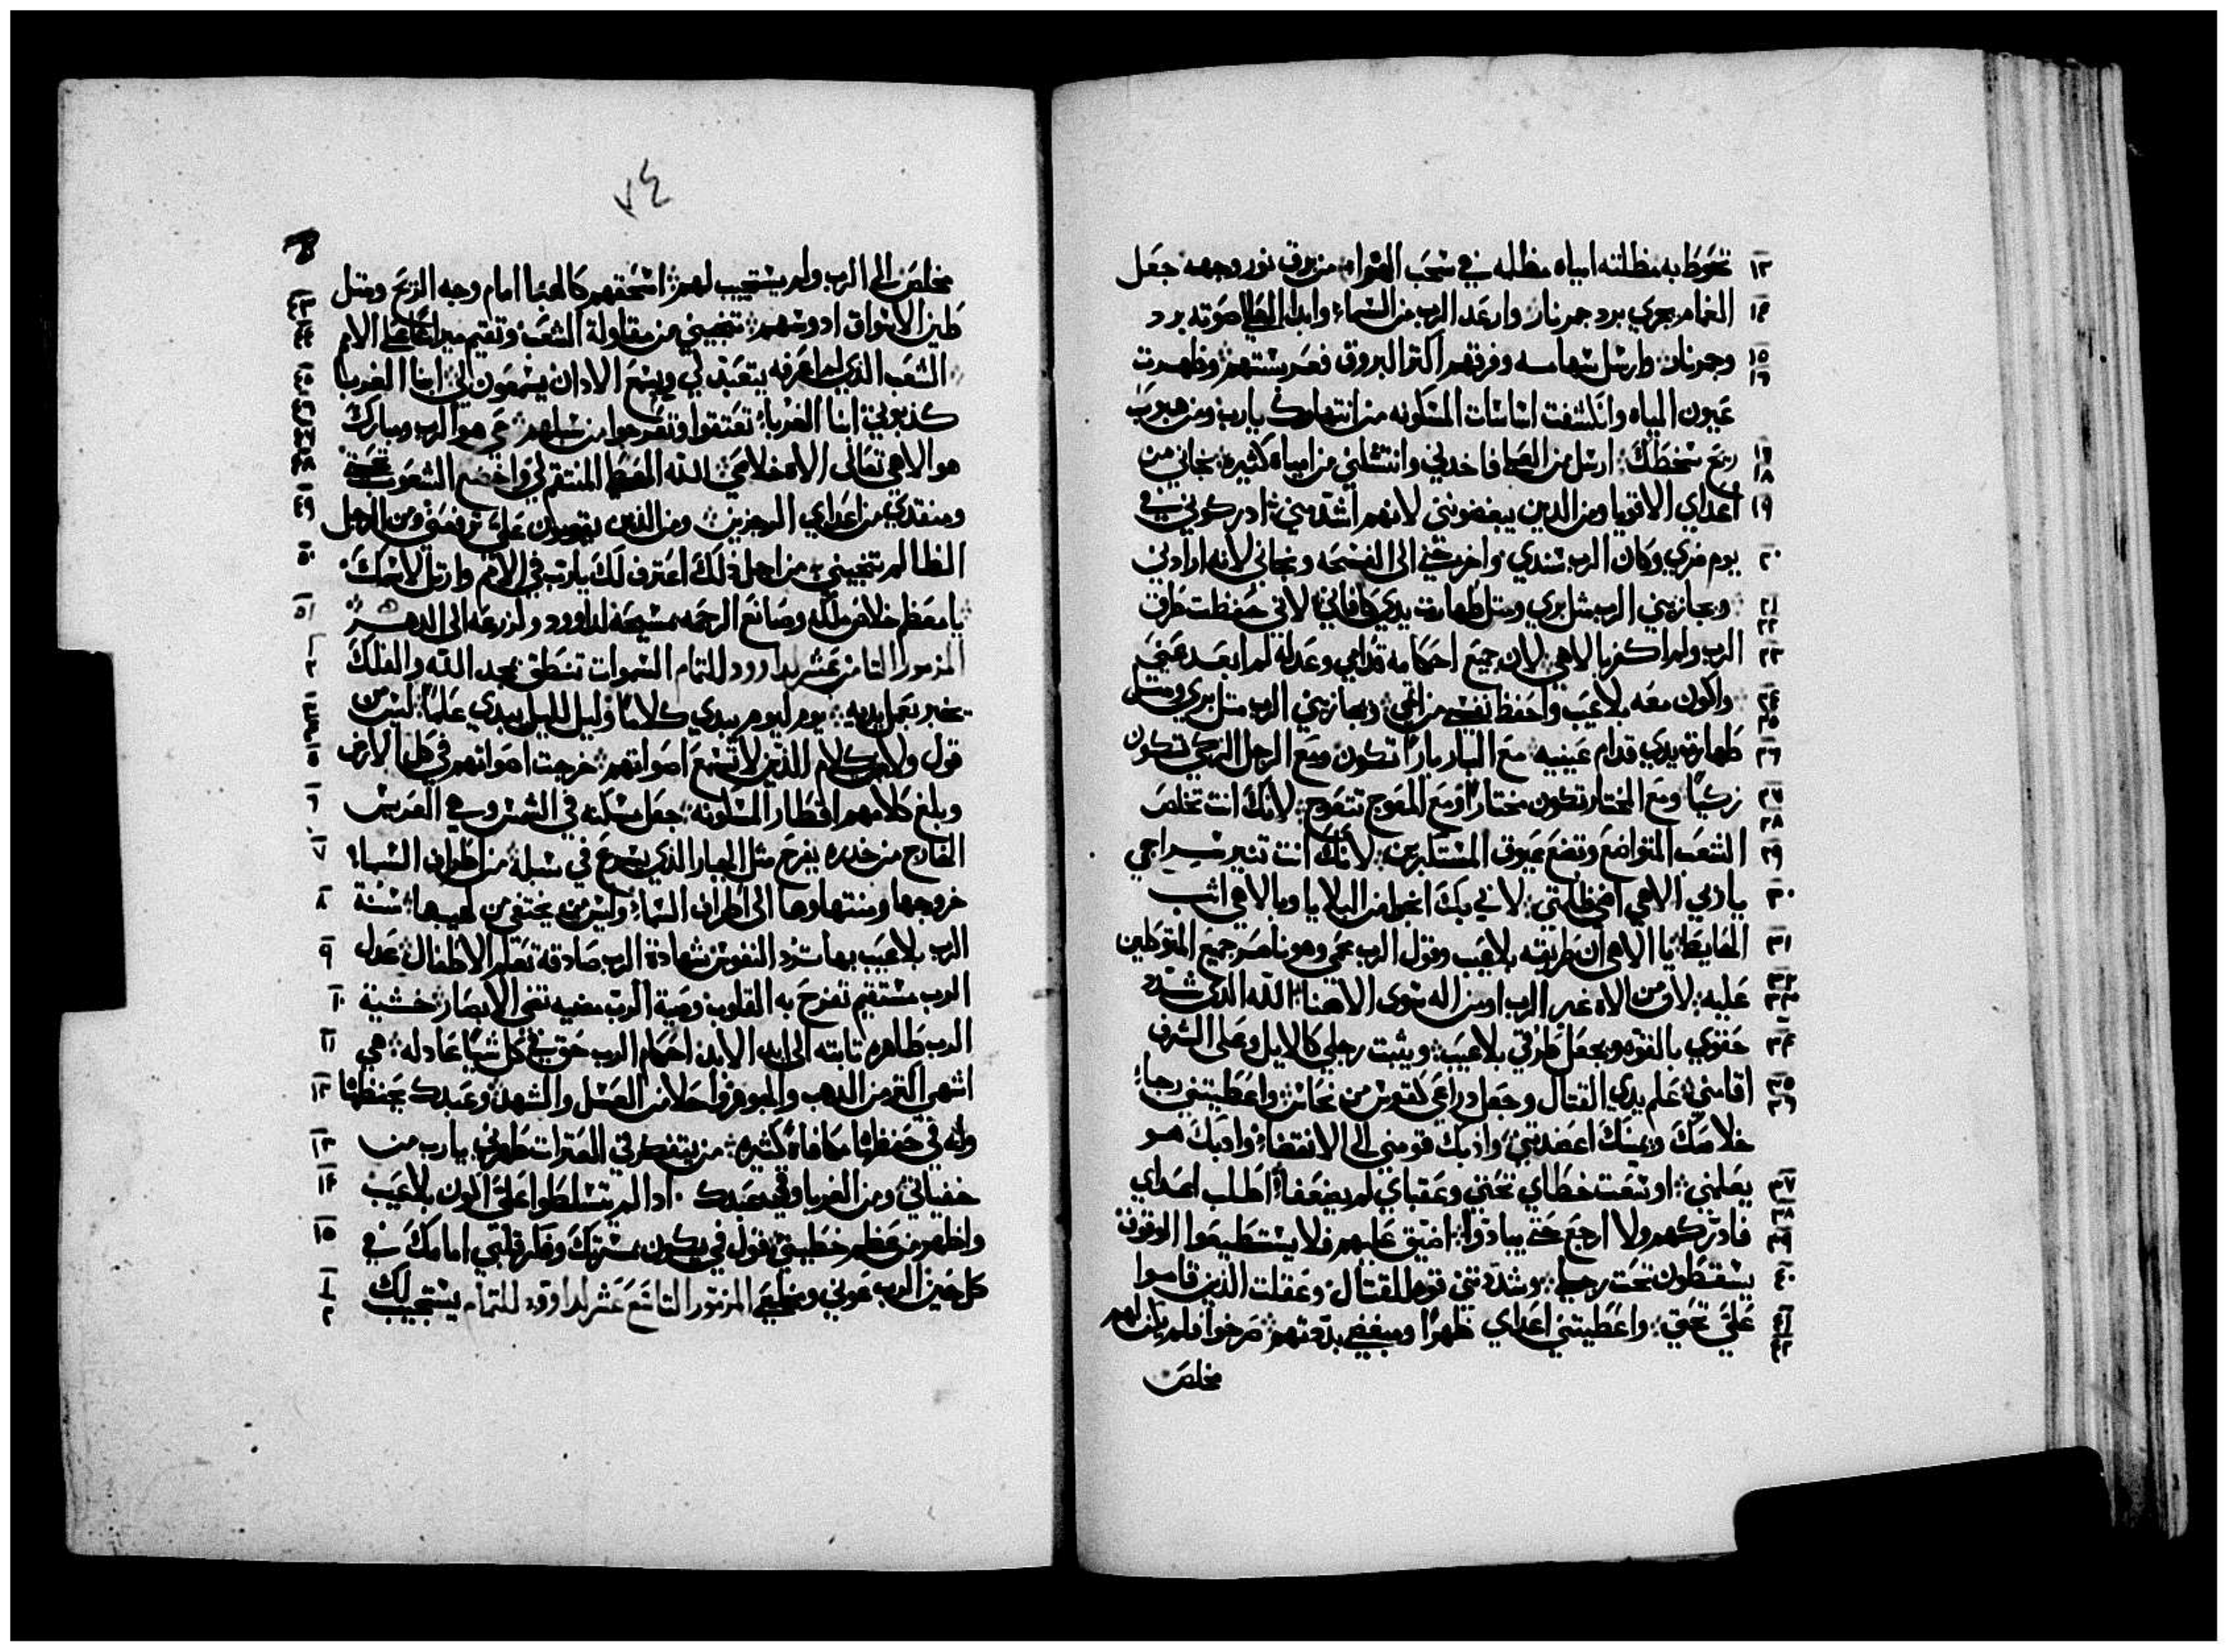 ١٣ تحوط به مظلته امياه مظلمه في سحب الهواء من برق نور وجهه جعل
١٤ الغمام يجري برد جمر نار وارعد الرب من السماء وابدا العلي صوته برد
١٥ ١٦ وجمر نار وارسل سهامه وفرقهم اكثر البروق فعربستهم وظهرت
عيون المياه وانكشفت اساسات المسكونه من انتهارك يارب ومن هبوب
١٧ ١٨ ريح سخطك ارسل من العلا فاخدني وانتشلني من امياه كثيره نجاني من
١٩ اعداي الاقويا ومن الدين يبغضونني لانهم اشد مني ادركوني في
٢٠ يوم ضري وكان الرب سندي واخرجني الى الفسحه ونجاني لانه ارادني
٢١ ٢٢ ويجازيني الرب مثل بري ومثل طهارت يدي كافاني لاني حفظت طرق
٢٣ الرب ولم اكفر بالاهي لان جميع احكامه قدامي وعدله لم ابعد عني
٢٤ ٢٥ واكون معه بلا عيب واحفظ نفسي من اثمي ويجازيني الرب مثل بري ومثل
٢٦ طهارة يدي قدام عينيه مع البار بارا تكون ومع الرجل الزكي تكون
٢٧ ٢٨ زكيا ومع المختار تكون مختارا ومع المعوج تتعوج لانك انت تخلص
٢٩ الشعب المتواضع وتضع عيون المستكبرين لانك انت تنير سراجي
٣٠ يا ربي الاهي اضي ظلمتي لاني بك انجوا من البلايا وبالاهي اثب
٣١ الحايط يا الاهي ان طريقته بلا عيب وقول الرب محمي وهو ناصر جميع المتوكلين
٣٢ ٣٣ عليه لان من الاه غير الرب او من اله سوى الاهنا الله الدي شدد
٣٤ حقوي بالقوه وجعل طرقي بلا عيب ويثبت رجلي كالايل وعلى الشرف
٣٥ ٣٦ اقامني علم يدي القتال وجعل دراعي كقوس من نحاس واعطيتني رجاء
خلاصك ويمينك اعضدتني وادبك قومني الى الانقضاء وادبك هو
٣٧ يعلمني اوسعت خطاي تحتي وعقباي لم يضعفا اطلب اعداي
٣٨ ٣٩ فادركهم ولا ارجع حتى يبادوا اضيق عليهم فلا يستطيعوا الوقوف
٤٠ يسقطون تحت رجلي وشددتني قوه للقتال وعقلت الذين قاموا
٤١ ٤٢ علي تحتي واعطيتني اعداي ظهرا ومبغضي بددتهم صرخوا فلم يكن لهم
مخلص
٧٤
مخلص الى الرب ولم يستجيب لهم اسحقهم كالهبا امام وجه الريح ومثل
٤٣ ٤٤ طين الاسواق ادوسهم تنجيني من مقاولة الشعب وتقيم ميراثا على الامم
٤٥ الشعب الذي لم اعرفه يتعبد لي وبسمع الادان يسمعون لي ابنا الغربا
٤٦ ٤٧ كذبوني ابنا الغربا تعتقوا وتعرجوا من سبلهم حي هو الرب ومبارك
٤٨ هو الاهي تعالى الاه خلاصي الله المعطي المنتقم لي واخضع الشعوب تحتي
٤٩ ومنقدي من اعداي المرجزين ومن الذين يقومون علي ترفعني ومن الرجل
٥٠ الظالم تنجيني من اجل ذلك اعترف لك يارب في الامم وارتل لاسمك
٥١ يا معظم خلاص ملكه وصانع الرحمه بمسيحه لداوود ولزرعه الى الدهر
١ ٢ المزمور الثامن عشر لداوود للتمام السموات تنطق بمجد الله والفلك
٣ ٤ يخبر بعمل يديه يوم ليوم يبدي كلاما وليل لليل يبدي علما ليس من
٥ قول ولا من كلام الذين لا تسمع اصواتهم خرجت اصواتهم في كل الارض
٦ وبلغ كلامهم اقطار المسكونه جعل مسكنه في الشمس وهي العريس
٧ الخارج من خدره يفرح مثل الجبار الذي يسرع في سبله من اطراف السماء
٨ خروجها ومنتهاوها الى اطراف السماء وليس من يختفي من لهيبها سنة
٩ الرب بلا عيب بها ترد النفوس شهادة الرب صادقة تعلم الاطفال عدل
١٠ الرب مستقيم تفرح به القلوب وصية الرب مضيه تنير الابصار خشية
١١ الرب طاهره ثابته الى ابد الابد احكام الرب حق في كل شيا عادله هي
١٢ اشهى اكثر من الدهب والجوهر واحلا من العسل والشهد وعبدك يحفظها
١٣ وله في حفظها مكافاة كثيره من يتفكر في العثرات طهرني يارب من
١٤ خفياتي ومن الغربا وقي عبدك ادا لم تتسلطوا علي اكون بلا عيب
١٥ واطهر من عظم خطيتي قول في يكون بمسرتك وفكر قلبي امامك في
١ ٢ كل حين الرب عوني ومخلصي المزمور التاسع عشر لداوود للتمام يستجيب لك